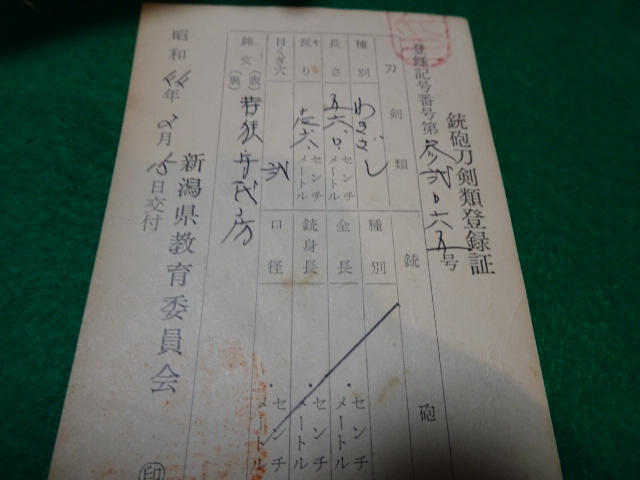 銃砲刀剣類登録証
登録記号番号第参弐〇六五号
刀剣類
種別 わきざし
長さ 五六.〇センチメートル
反り 壱.六センチメートル
目くぎ穴 弐
銘文(表)若狭守氏房
(裏)
銃砲
種別
金長 ・センチメートル
銃身長 ・センチメートル
口径 ・センチメートル
昭和44年2月15日交付
新潟県教育委員会
印